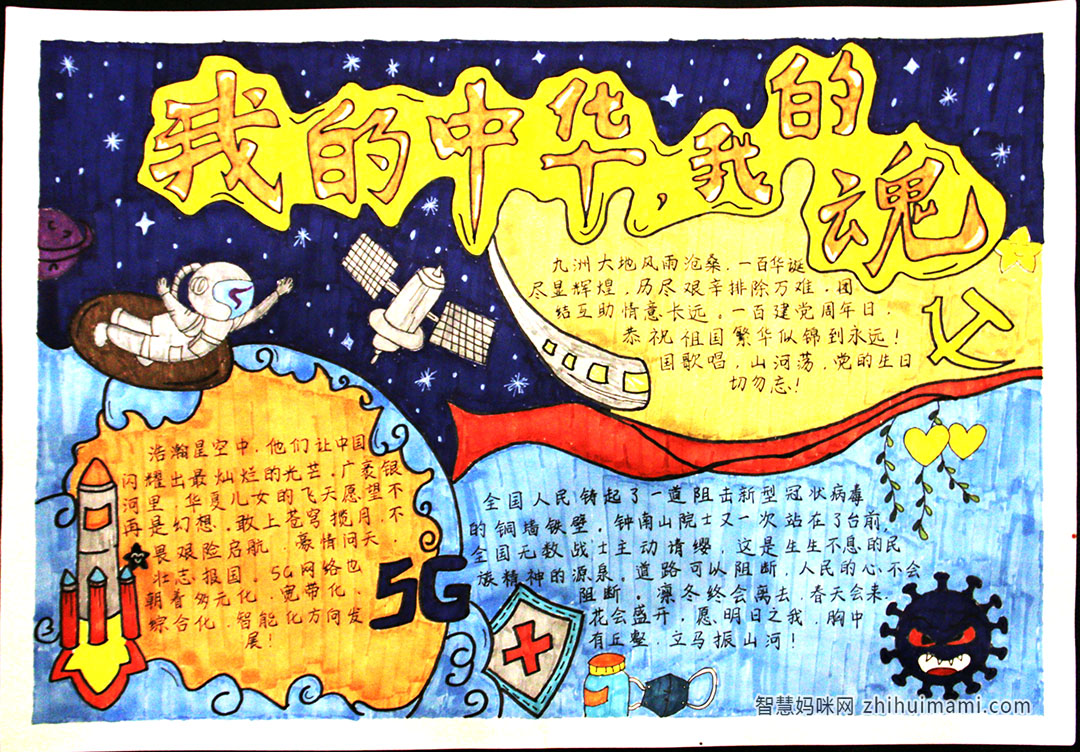 我的中华,我的魂
九洲大地风雨沧桑,一百华诞
尽显辉煌,历尽艰辛排除万难,团
结互助情意长远。一百建党周年日,
恭祝祖国繁华似锦到永远!
国歌唱,山河荡,党的生日
切勿忘!
浩瀚星空中,他们让中国
闪耀出最灿烂的光芒。广袤银
河里,华夏儿女的飞天愿望不
再是幻想。敢上苍穹揽月,不
畏艰险启航,豪情问天,
壮志报国。5G网络也
朝着多元化、宽带化、
综合化、智能化方向发
展!
5G
全国人民铸起了一道阻击新型冠状病毒
的铜墙铁壁。钟南山院士又一次站在了台前,
全国无数战士主动请缨,这是生生不息的民
族精神的源泉。道路可以阻断,人民的心不会
阻断。凛冬终会离去,春天会来,
花会盛开,愿明日之我,胸中
有丘壑,立马振山河!
智慧妈咪网 zhihuimami.com